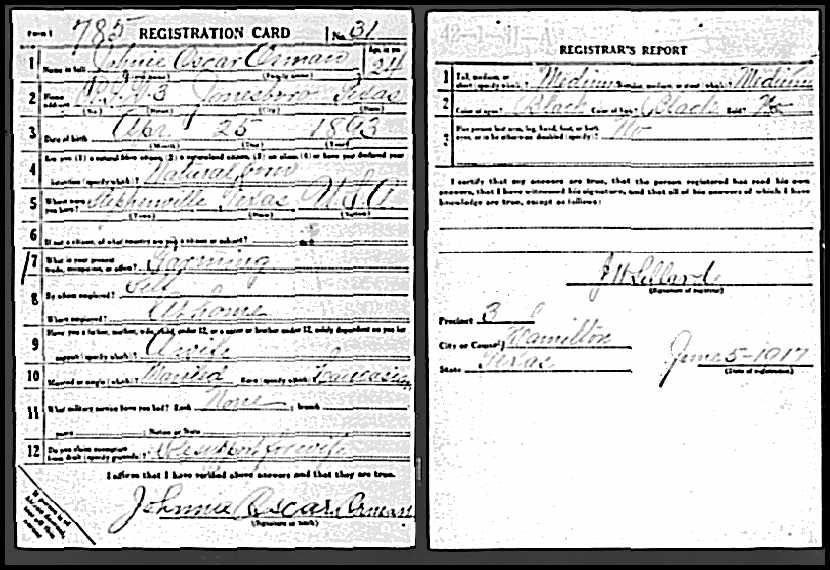 Form 1 785 REGISTRATION CARD No. 31
1 Name in full Johnie Oscar Osman Age, in yrs 24
(Given name) (Family name)
2 Home address R.F.D. 3 Jonesboro Texas
(No.) (Street) (City) (State)
3 Date of birth Apr. 25 1893
(Month) (Day) (Year)
4 Are you (1) a natural born citizen, (2) a naturalized citizen, (3) an alien, (4) or have you declared your
intention (specify which)? Natural born
5 Where were you born? Stephenville Texas U S A
(Town) (State) (Nation)
6 If not a citizen, of what country are you a citizen or subject?
7 What is your present trade, occupation, or office? Farming
8 By whom employed? Self
Where employed? At home
9 Have you a father, mother, wife, child under 12, or a sister or brother under 12, solely dependent on you for
support (specify which)? A wife
10 Married or single (which)? Married Race (specify which)? Caucasian
11 What military service have you had? Rank None ; branch
years ; Nation or State
12 Do you claim exemption from draft (specify grounds)? support for wife
I affirm that I have verified above answers and that they are true.
Johnnie Oscar Osman
(Signature or mark)
If person is of African descent, tear off this corner
REGISTRAR'S REPORT
1 Tall, medium, or short (specify which)? Medium Slender, medium, or stout (which)? Medium
2 Color of eyes? Black Color of hair? Black Bald? No
3 Has person lost arm, leg, hand, foot, or both eyes, or is he otherwise disabled (specify)? No
I certify that my answers are true, that the person registered has read his own
answers, that I have witnessed his signature, and that all of his answers of which I have
knowledge are true, except as follows:
(Signature of registrar)
Precinct 3
City or County Hamilton
State Texas
June 5-1917
(Date of registration)